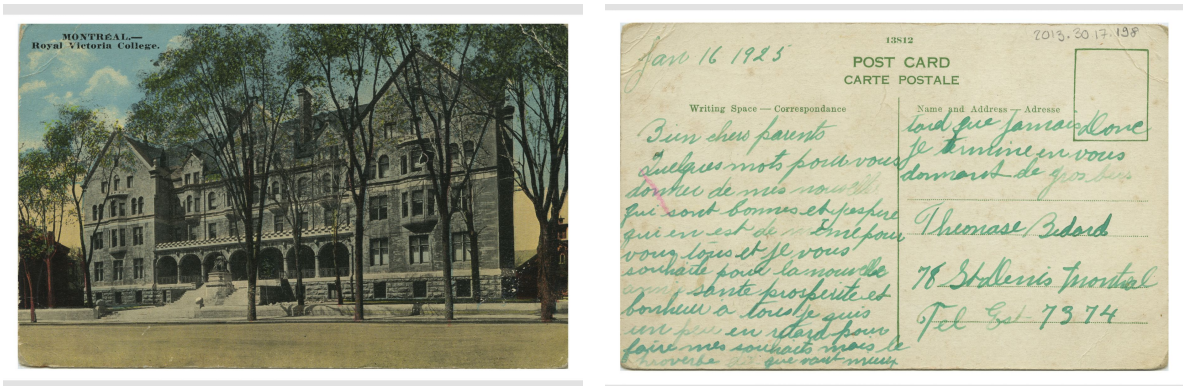 MONTRÉAL.—
Royal Victoria College.
2013.30.17.198
13812
POST CARD
CARTE POSTALE
Jan 16 1925
Writing Space — Correspondance
Bien chers parents
Quelques mots pour vous
donner de mes nouvelle
qui sont bonnes et j'espere
qui en est de meme pour
vous tous et je vous
souhaite pour la nouvelle
anne sante prosperite et
bonheur a tous je suis
un peu en retard pour
faire mes souhaits mais le
proverbe dit que vaut mieux
Name and Address — Adresse
tard que jamais Donc
je termine en vous
donnant de gros
Theonase Bedard
78 St Denis Montreal
Tel Est 7374